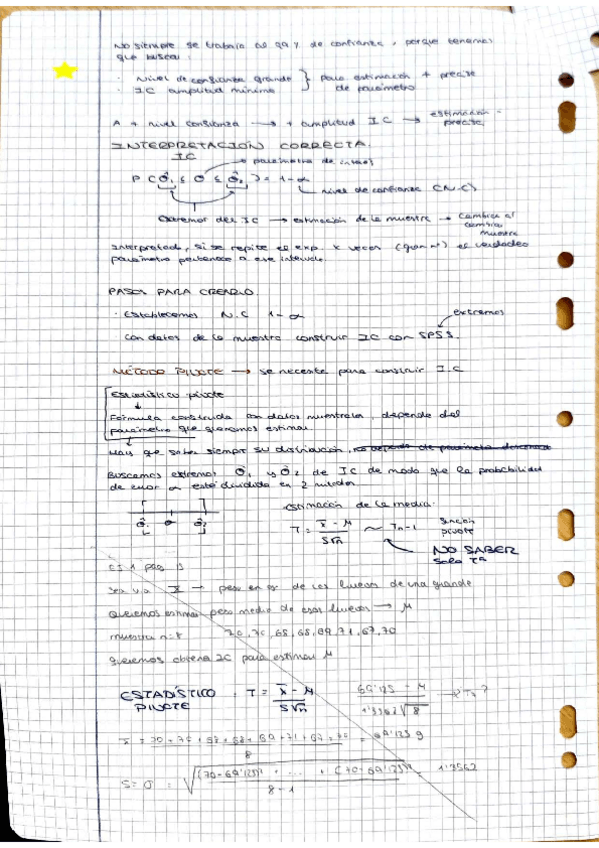 No siempre se trabaja al 99% de confianza, porque tenemos
que buscar:
· Nivel de confianza grande } para estimación + precisa
· IC amplitud mínima de parámetro
A + nivel confianza → + amplitud IC → estimación - precisa
INTERPRETACIÓN CORRECTA
IC → parámetro de interés
P(Ô₁ ≤ O ≤ Ô₂) = 1-α
nivel de confianza (N.C)
Extremos del IC → estimación de la muestra → cambia al cambiar muestra
Interpretada, si se repite el exp. x veces (gran nº) el verdadero
parámetro pertenece a ese intervalo.
PASOS PARA CREARLO
· Establecemos N.C 1-α
extremos
con datos de la muestra construir IC con SPSS.
MÉTODO PIVOTE → se necesita para construir I.C
Estadístico pivote
Fórmula construida con datos muestrales, depende del
parámetro que queremos estimar
Hay que saber siempre su distribución,
Buscamos extremos Ô₁ y Ô₂ de IC de modo que la probabilidad
de error α esté dividida en 2 mitades
estimación de la media:
Ô₁ O Ô₂
T = x̄ - μ / S√n ~ Tn-1 función pivote
NO SABER
Solo Tª
EJ 1 pag 13
Sea v.a X → peso en gr de los huevos de una granja
Queremos estimar peso medio de esos huevos → μ
muestra n=8 70, 70, 68, 68, 69, 71, 67, 70
queremos obtener IC para estimar μ
ESTADÍSTICO PIVOTE · T = x̄ - μ / S√n 69'125 - μ / 1'3562√8 → T₇
x̄ = 70 + 70 + 68 + 68 + 69 + 71 + 67 + 70 / 8 = 69'125 g
S = σ = √((70-69'125)² + ... + (70-69'125)² / 8-1) = 1'3562